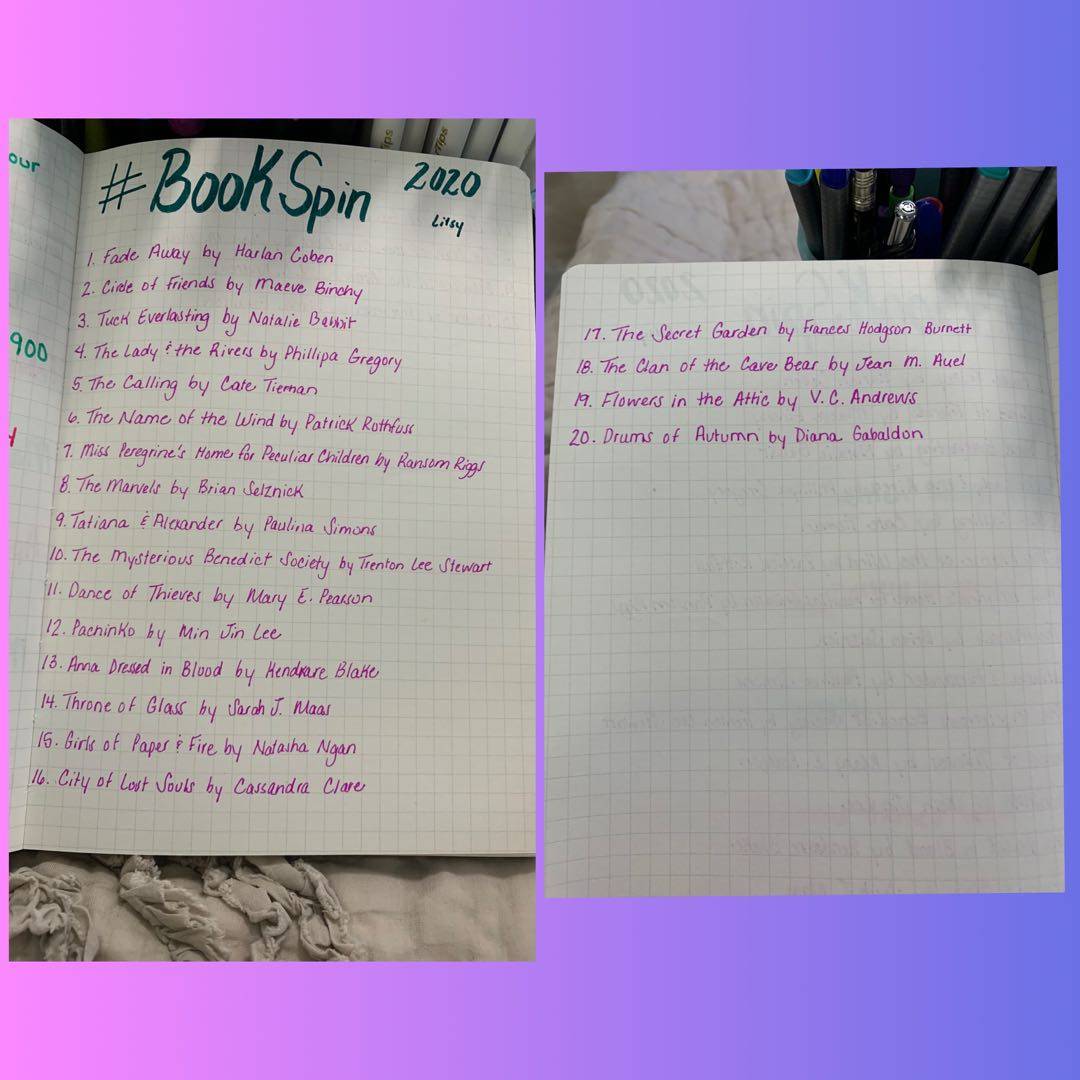 our
900
#BookSpin 2020
Litsy
1. Fade Away by Harlan Coben
2. Circle of Friends by Maeve Binchy
3. Tuck Everlasting by Natalie Babbit
4. The Lady & the Rivers by Phillipa Gregory
5. The Calling by Cate Tiernan
6. The Name of the Wind by Patrick Rothfuss
7. Miss Peregrine's Home for Peculiar Children by Ransom Riggs
8. The Marvels by Brian Selznick
9. Tatiana & Alexander by Paulina Simons
10. The Mysterious Benedict Society by Trenton Lee Stewart
11. Dance of Thieves by Mary E. Pearson
12. Pachinko by Min Jin Lee
13. Anna Dressed in Blood by Kendrare Blake
14. Throne of Glass by Sarah J. Maas
15. Girls of Paper & Fire by Natasha Ngan
16. City of Lost Souls by Cassandra Clare
17. The Secret Garden by Frances Hodgson Burnett
18. The Clan of the Cave Bear by Jean M. Auel
19. Flowers in the Attic by V.C. Andrews
20. Drums of Autumn by Diana Gabaldon